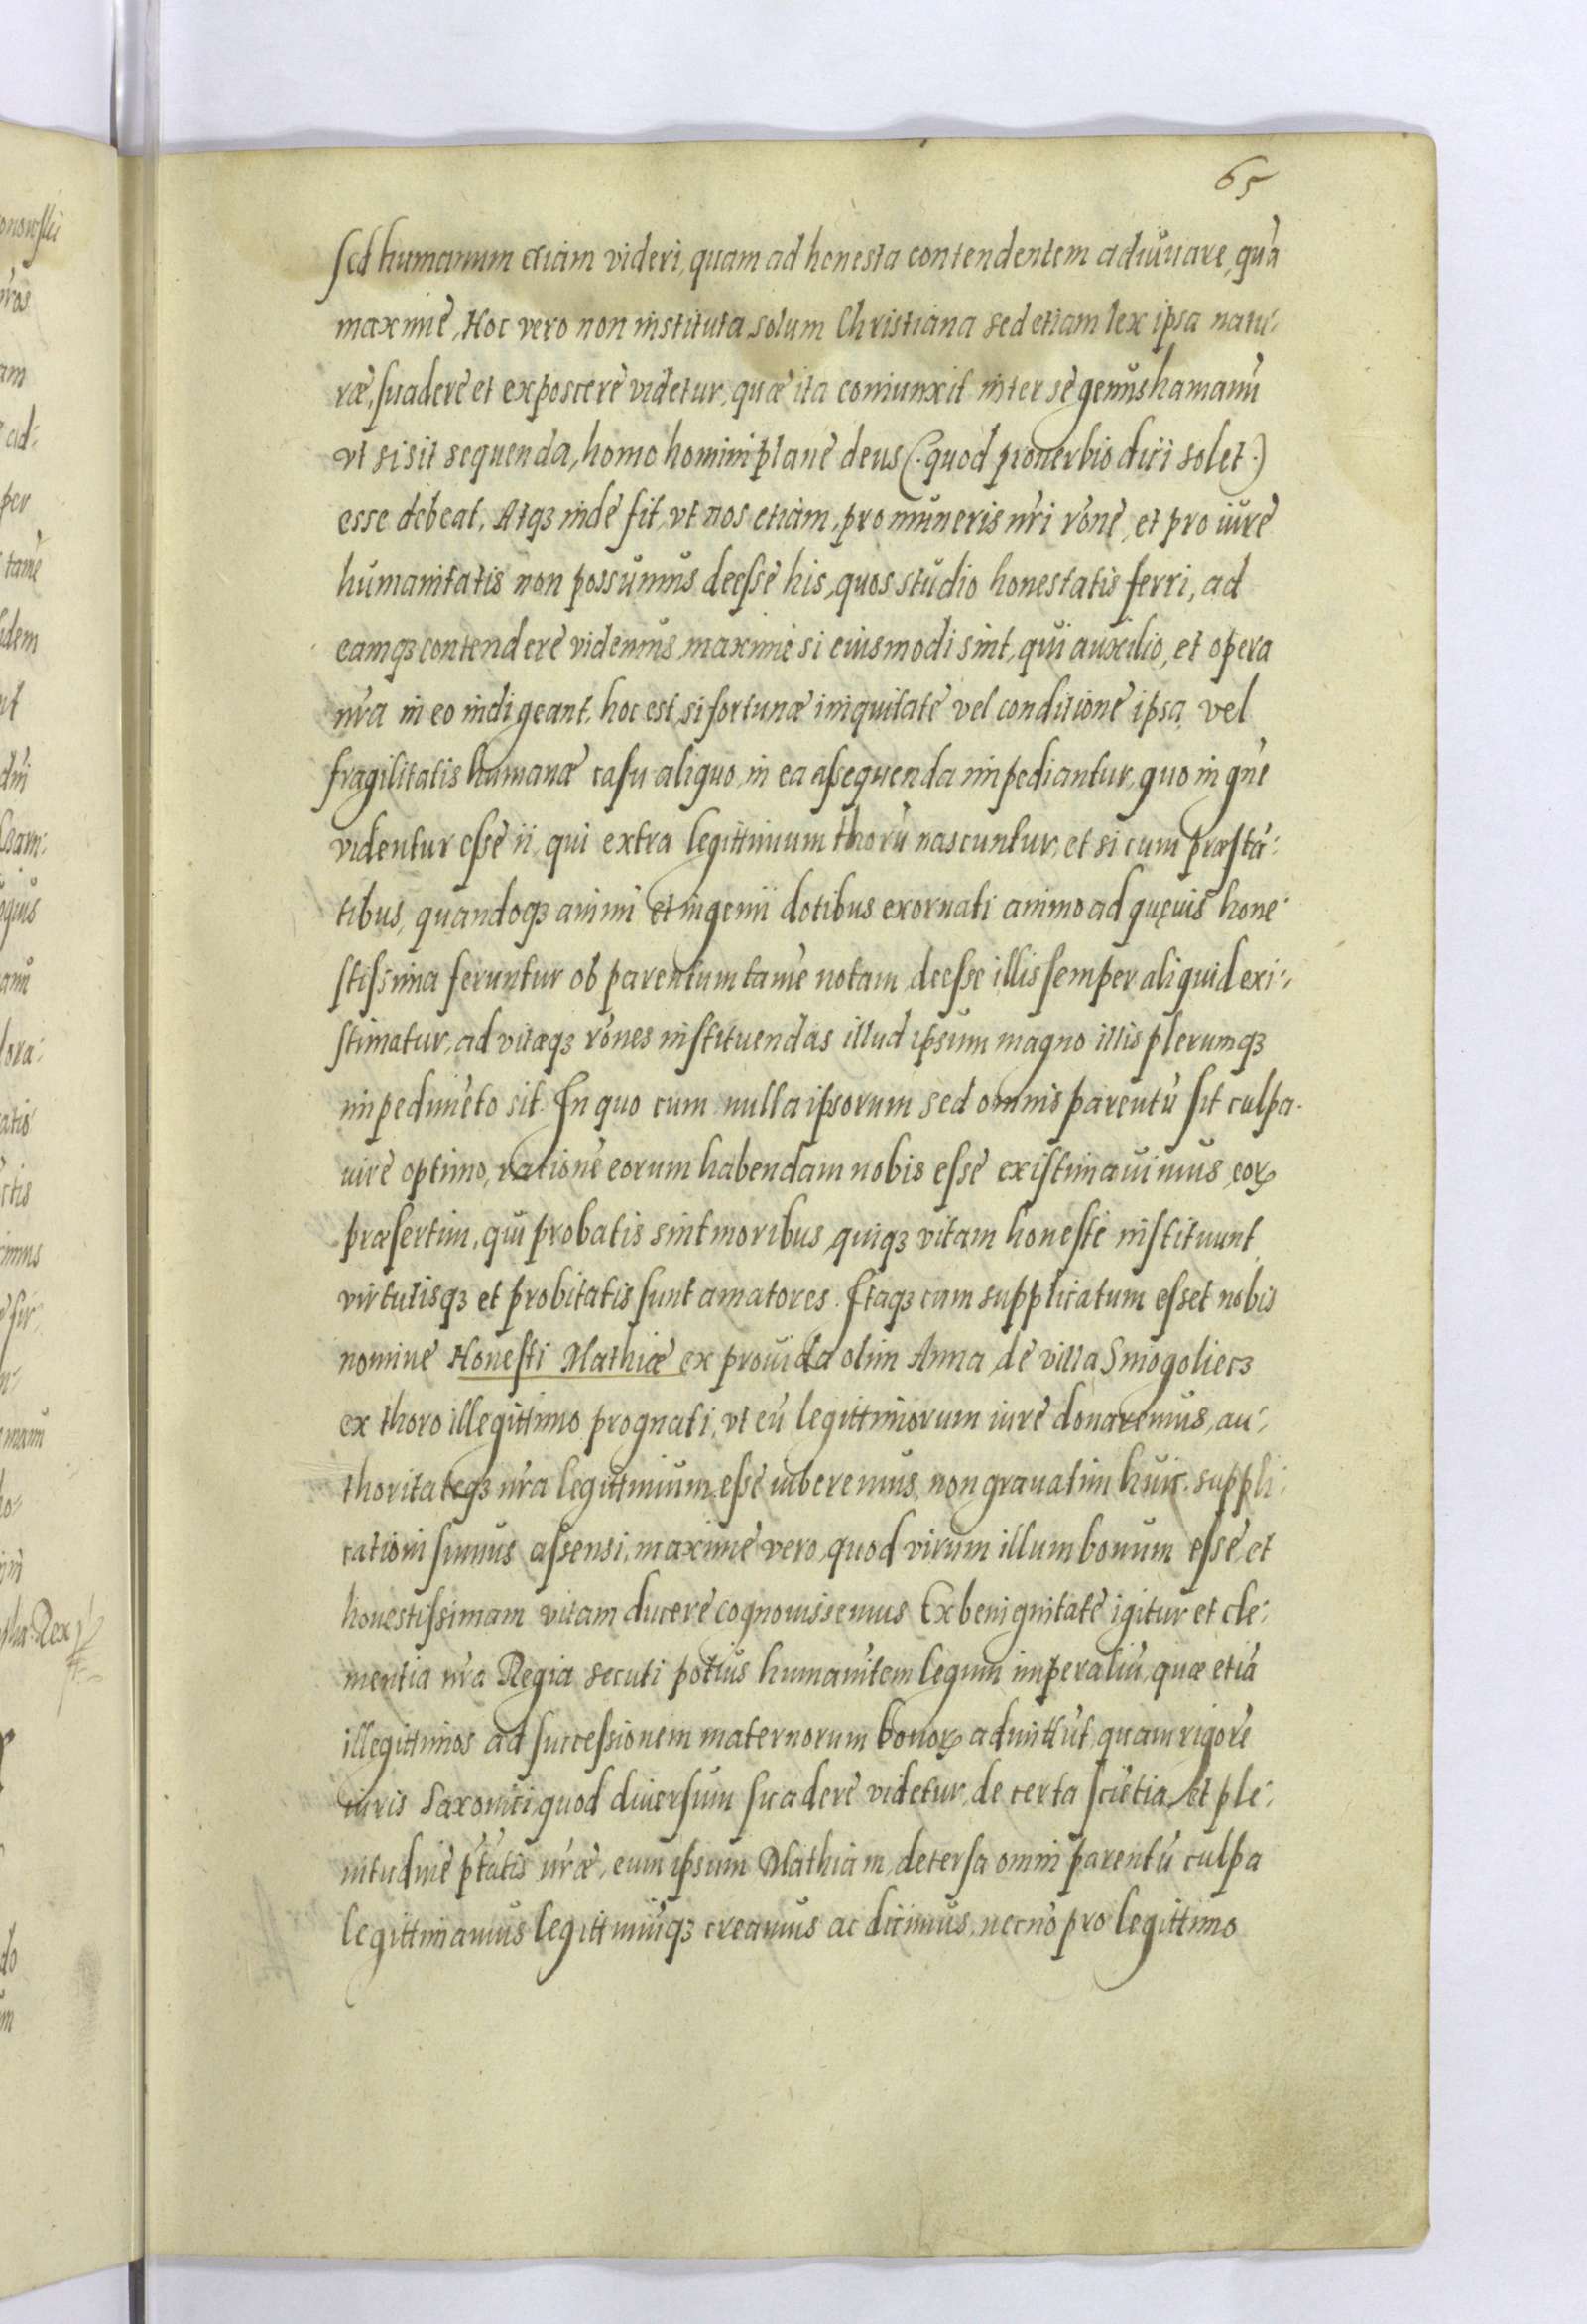 65
sed humanum etiam videri, quam ad honesta contendentem adiuuare, quā
maxime, Hoc vero non instituta solum Christiana sed etiam lex ipsa natu:
ræ, suadere et exposcere videtur, quæ ita coniunxit inter se genus hamanū
vt si sit sequenda, homo homini plane deus (quod prouerbio dici solet)
esse debeat, Atqꝫ inde fit, vt nos etiam, pro muneris nr̃i rõne, et pro iure
humanitatis non possumus deesse his, quos studio honestatis ferri, ad
eamqꝫ contendere videmus, maxime si eiusmodi sint, qui auxilio, et opera
nr̃a in eo indigeant, hoc est, si fortunæ iniquitate vel conditione ipsa, vel
fragilitatis humanæ casu aliquo, in ea assequenda impediantur, quo in gñe
videntur esse ii, qui extra legittimum thorū nascuntur, et si cum præstā:
tibus, quandoqꝫ animi et ingenii dotibus exornati animo ad quęuis hone:
stissima feruntur ob parentum tamē notam, deesse illis semper aliquid exi:
stimatur, ad vitæqꝫ rõnes instituendas illud ipsum magno illis plerumqꝫ
impedimēto sit. In quo cum nulla ipsorum sed omnis parentū sit culpa.
iure optimo, rationē eorum habendam nobis esse existimauimus, eoꝝ
præsertim, qui probatis sint moribus, quiqꝫ vitam honeste instituunt,
virtutisqꝫ et probitatis sunt amatores. Itaqꝫ cum supplicatum esset nobis
nomine Honesti Mathiæ ex prouida olim Anna de villa Smogoliecz
ex thoro illegittimo prognati, vt eū legittimorum iure donaremus, au:
thoritateqꝫ nr̃a legittimum esse iuberemus, non grauatim huic suppli:
cationi sumus assensi, maxime vero, quod virum illum bonum esse, et
honestissimam vitam ducere cognouissemus Ex benignitate igitur et cle:
mentia nr̃a Regia secuti potius humanitem legum imperaliū, quæ etiā
illegittimos ad successionem maternorum bonoꝝ admittūt, quam rigore
iuris Saxonici, quod diuersum suadere videtur, de certa sciētia, et ple:
nitudine ptãtis nr̃æ, eum ipsum Mathiam, detersa omni parentū culpa
legittimamus legittimūqꝫ creamus ac dicimus, necnō pro legittimo